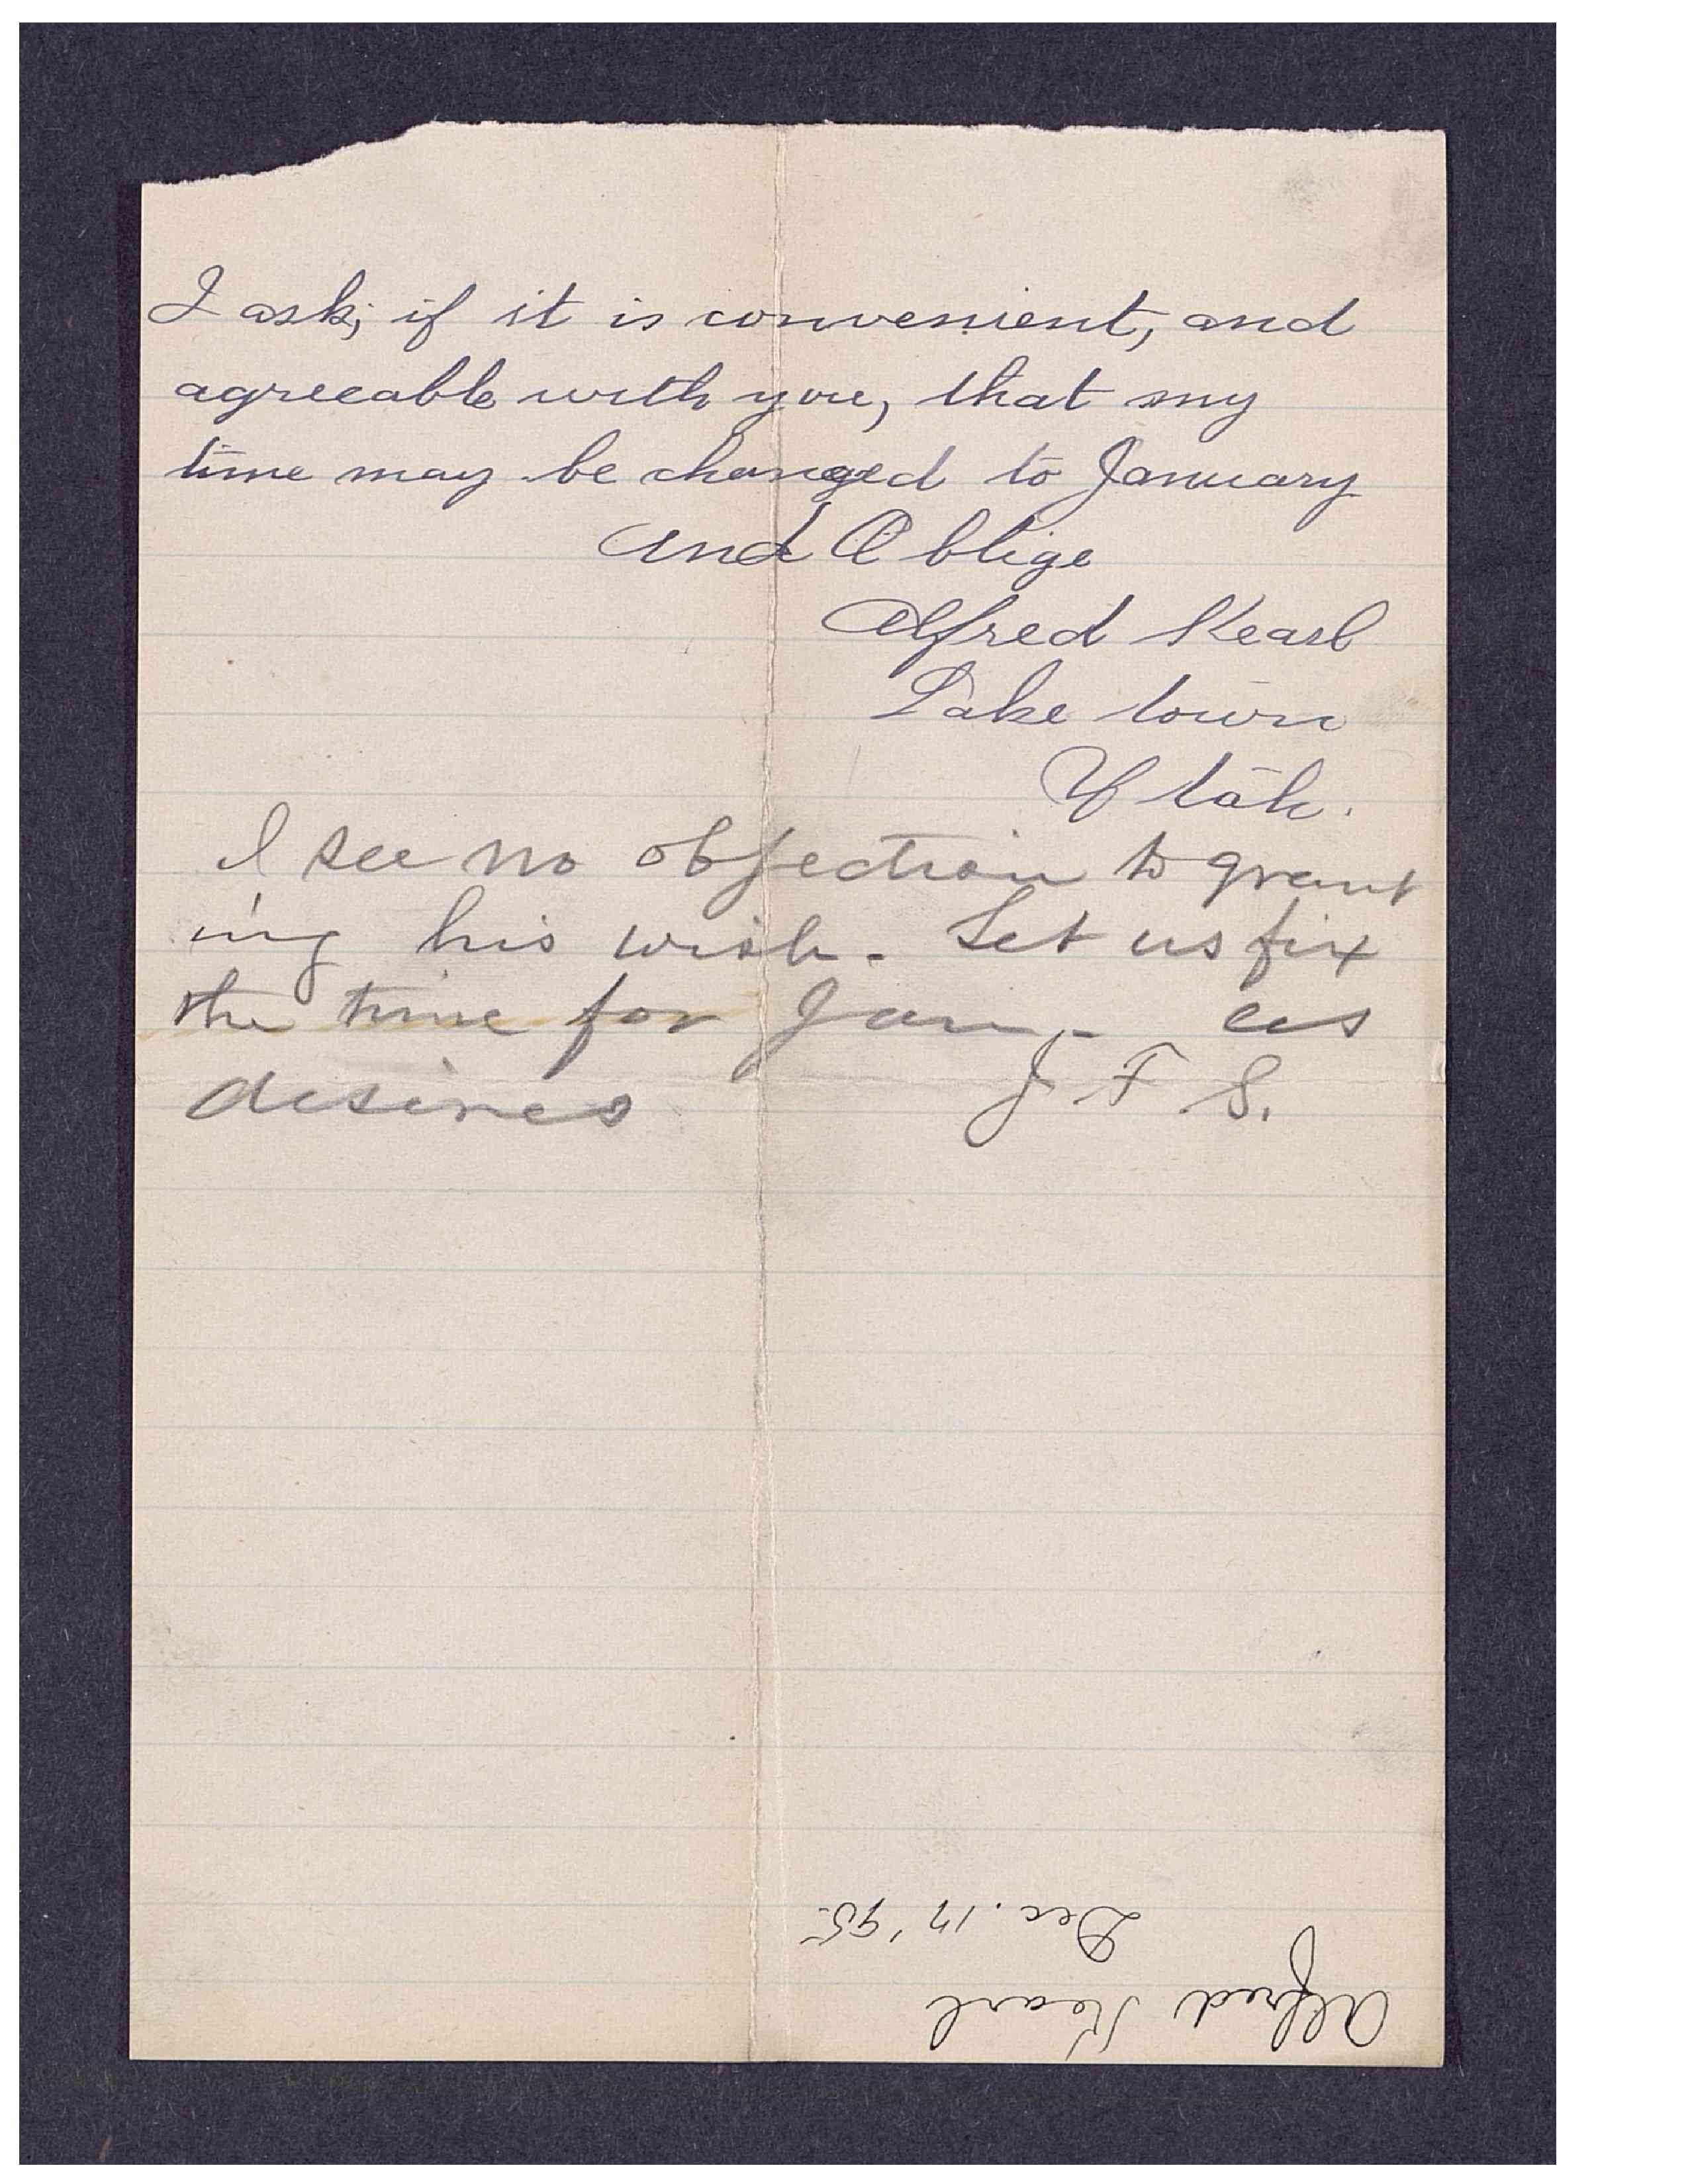 I ask; if it is convenient, and
agreeable with you, that my
time may be changed to January
And Oblige
Alfred Kearl
Lake town
Utah.
I see no objection to grant
ing his wish. Let us fix
the time for Jan,- as
desires J F S.
Alfred Kearl
Dec. 17 '95.